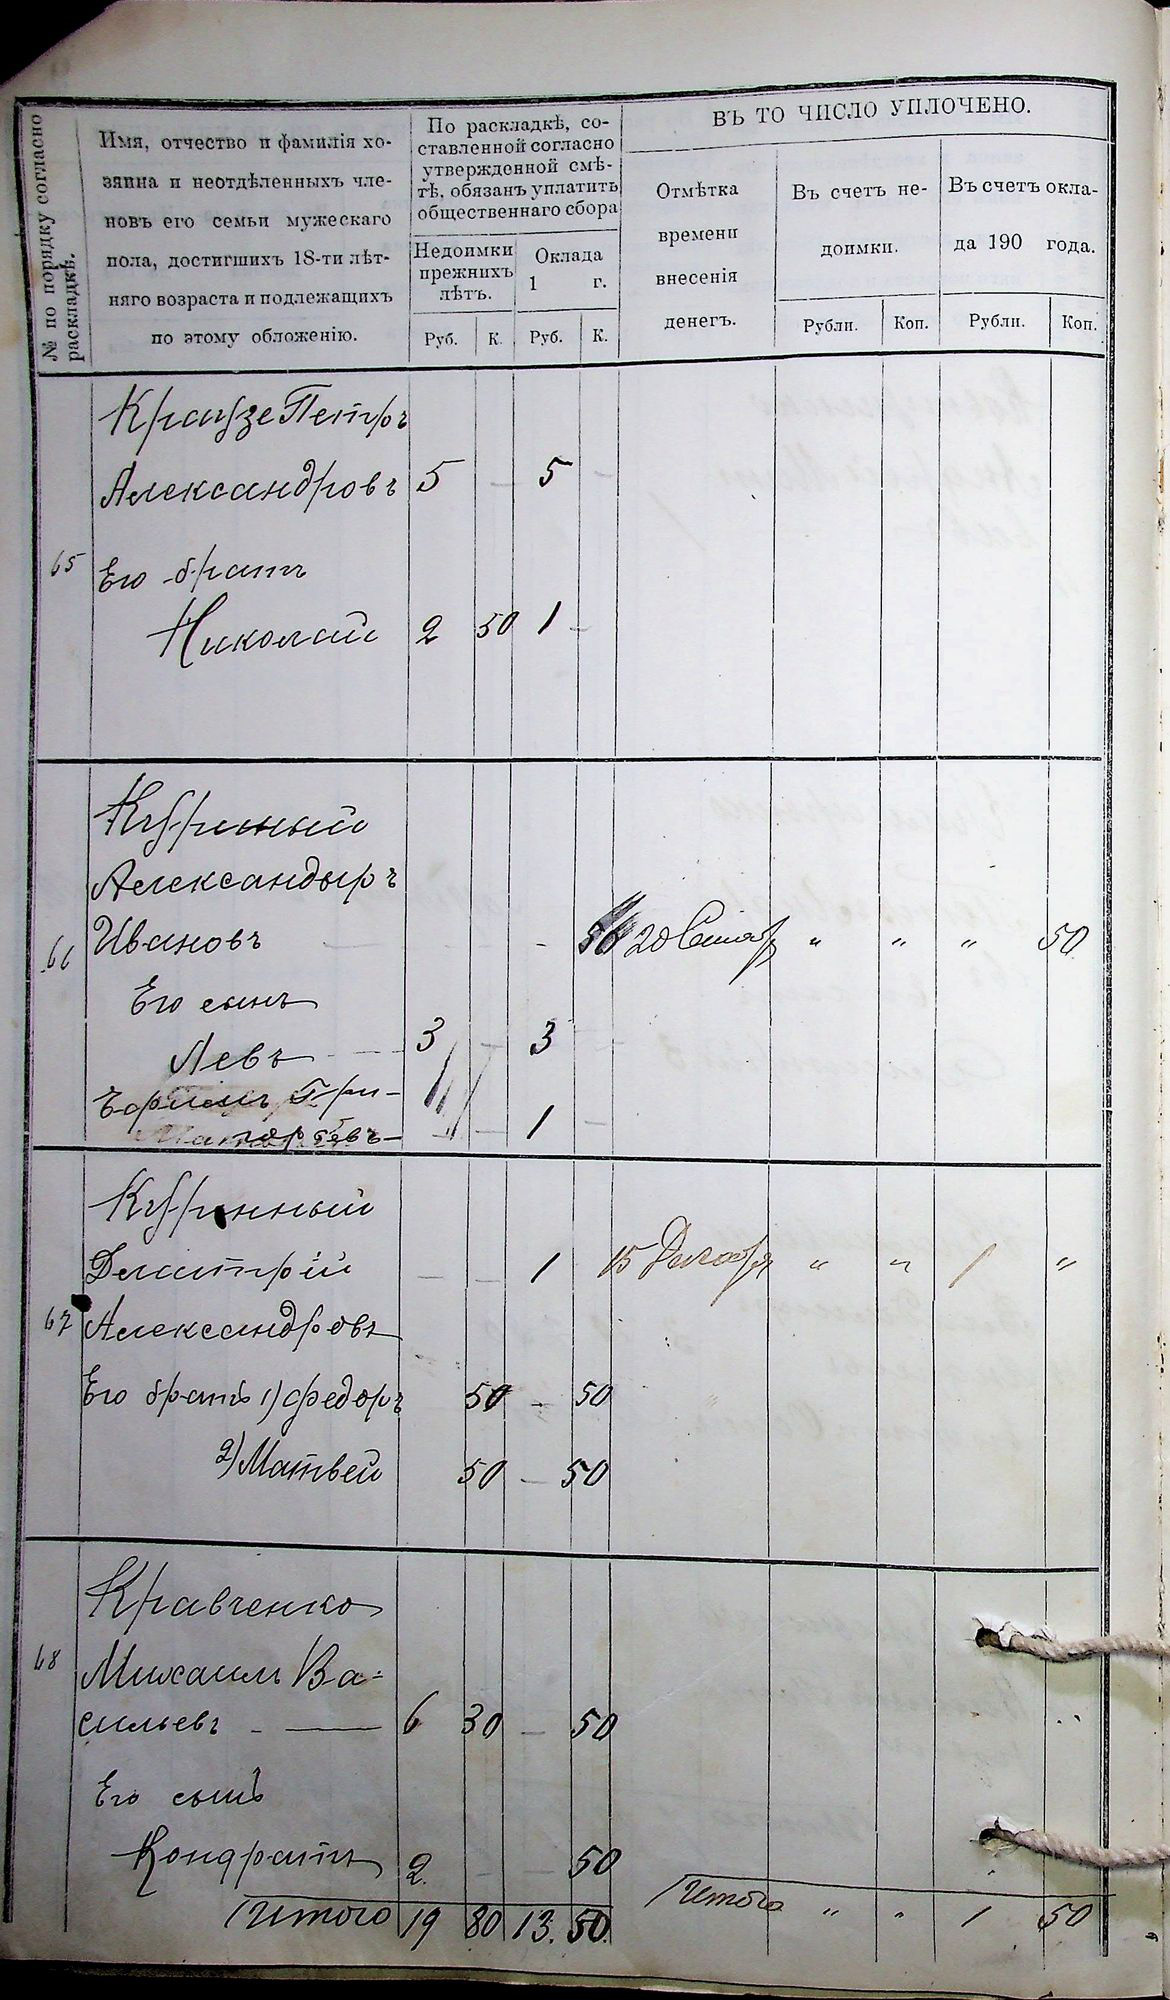 № по порядку согласно
раскладкѣ.
Имя, отчество и фамилія хо-
зяина и неотдѣленныхъ чле-
новъ его семьи мужескаго
пола, достигшихъ 18-ти лѣт-
няго возраста и подлежащихъ
по этому обложенію.
По раскладкѣ, со-
ставленной согласно
утвержденной смѣ-
тѣ, обязанъ уплатить
общественнаго сбора
Недоимки
прежнихъ
лѣтъ.
Оклада
1 г.
Руб. К. Руб. К.
ВЪ ТО ЧИСЛО УПЛОЧЕНО.
Отмѣтка
времени
внесенія
денегъ.
Въ счетъ не-
доимки.
Въ счетъ окла-
да 190 года.
Рубли. Коп. Рубли. Коп.
Краузе Петръ
Александровъ 5 — 5 —
65
Его братъ
Николай 2 50 1 —
Куринный
Александыръ
66 Ивановъ — — — 50 20 Сентяб " " " 50
Его сынъ
Левъ — 3 — 3 —
Гри-
горьевъ — — — 1 —
Куринный
Дмитрій — — 1 15 Декабря " " 1 "
67 Александровъ
Его братъ 1) Федоръ 50 — 50
2) Матвей 50 — 50
Кравченко
68 Михаилъ Ва=
сильевъ — 6 30 — 50
Его сынъ
Кондратъ 2 — — 50
Итого 19 80 13 50 Итого " " 1 50